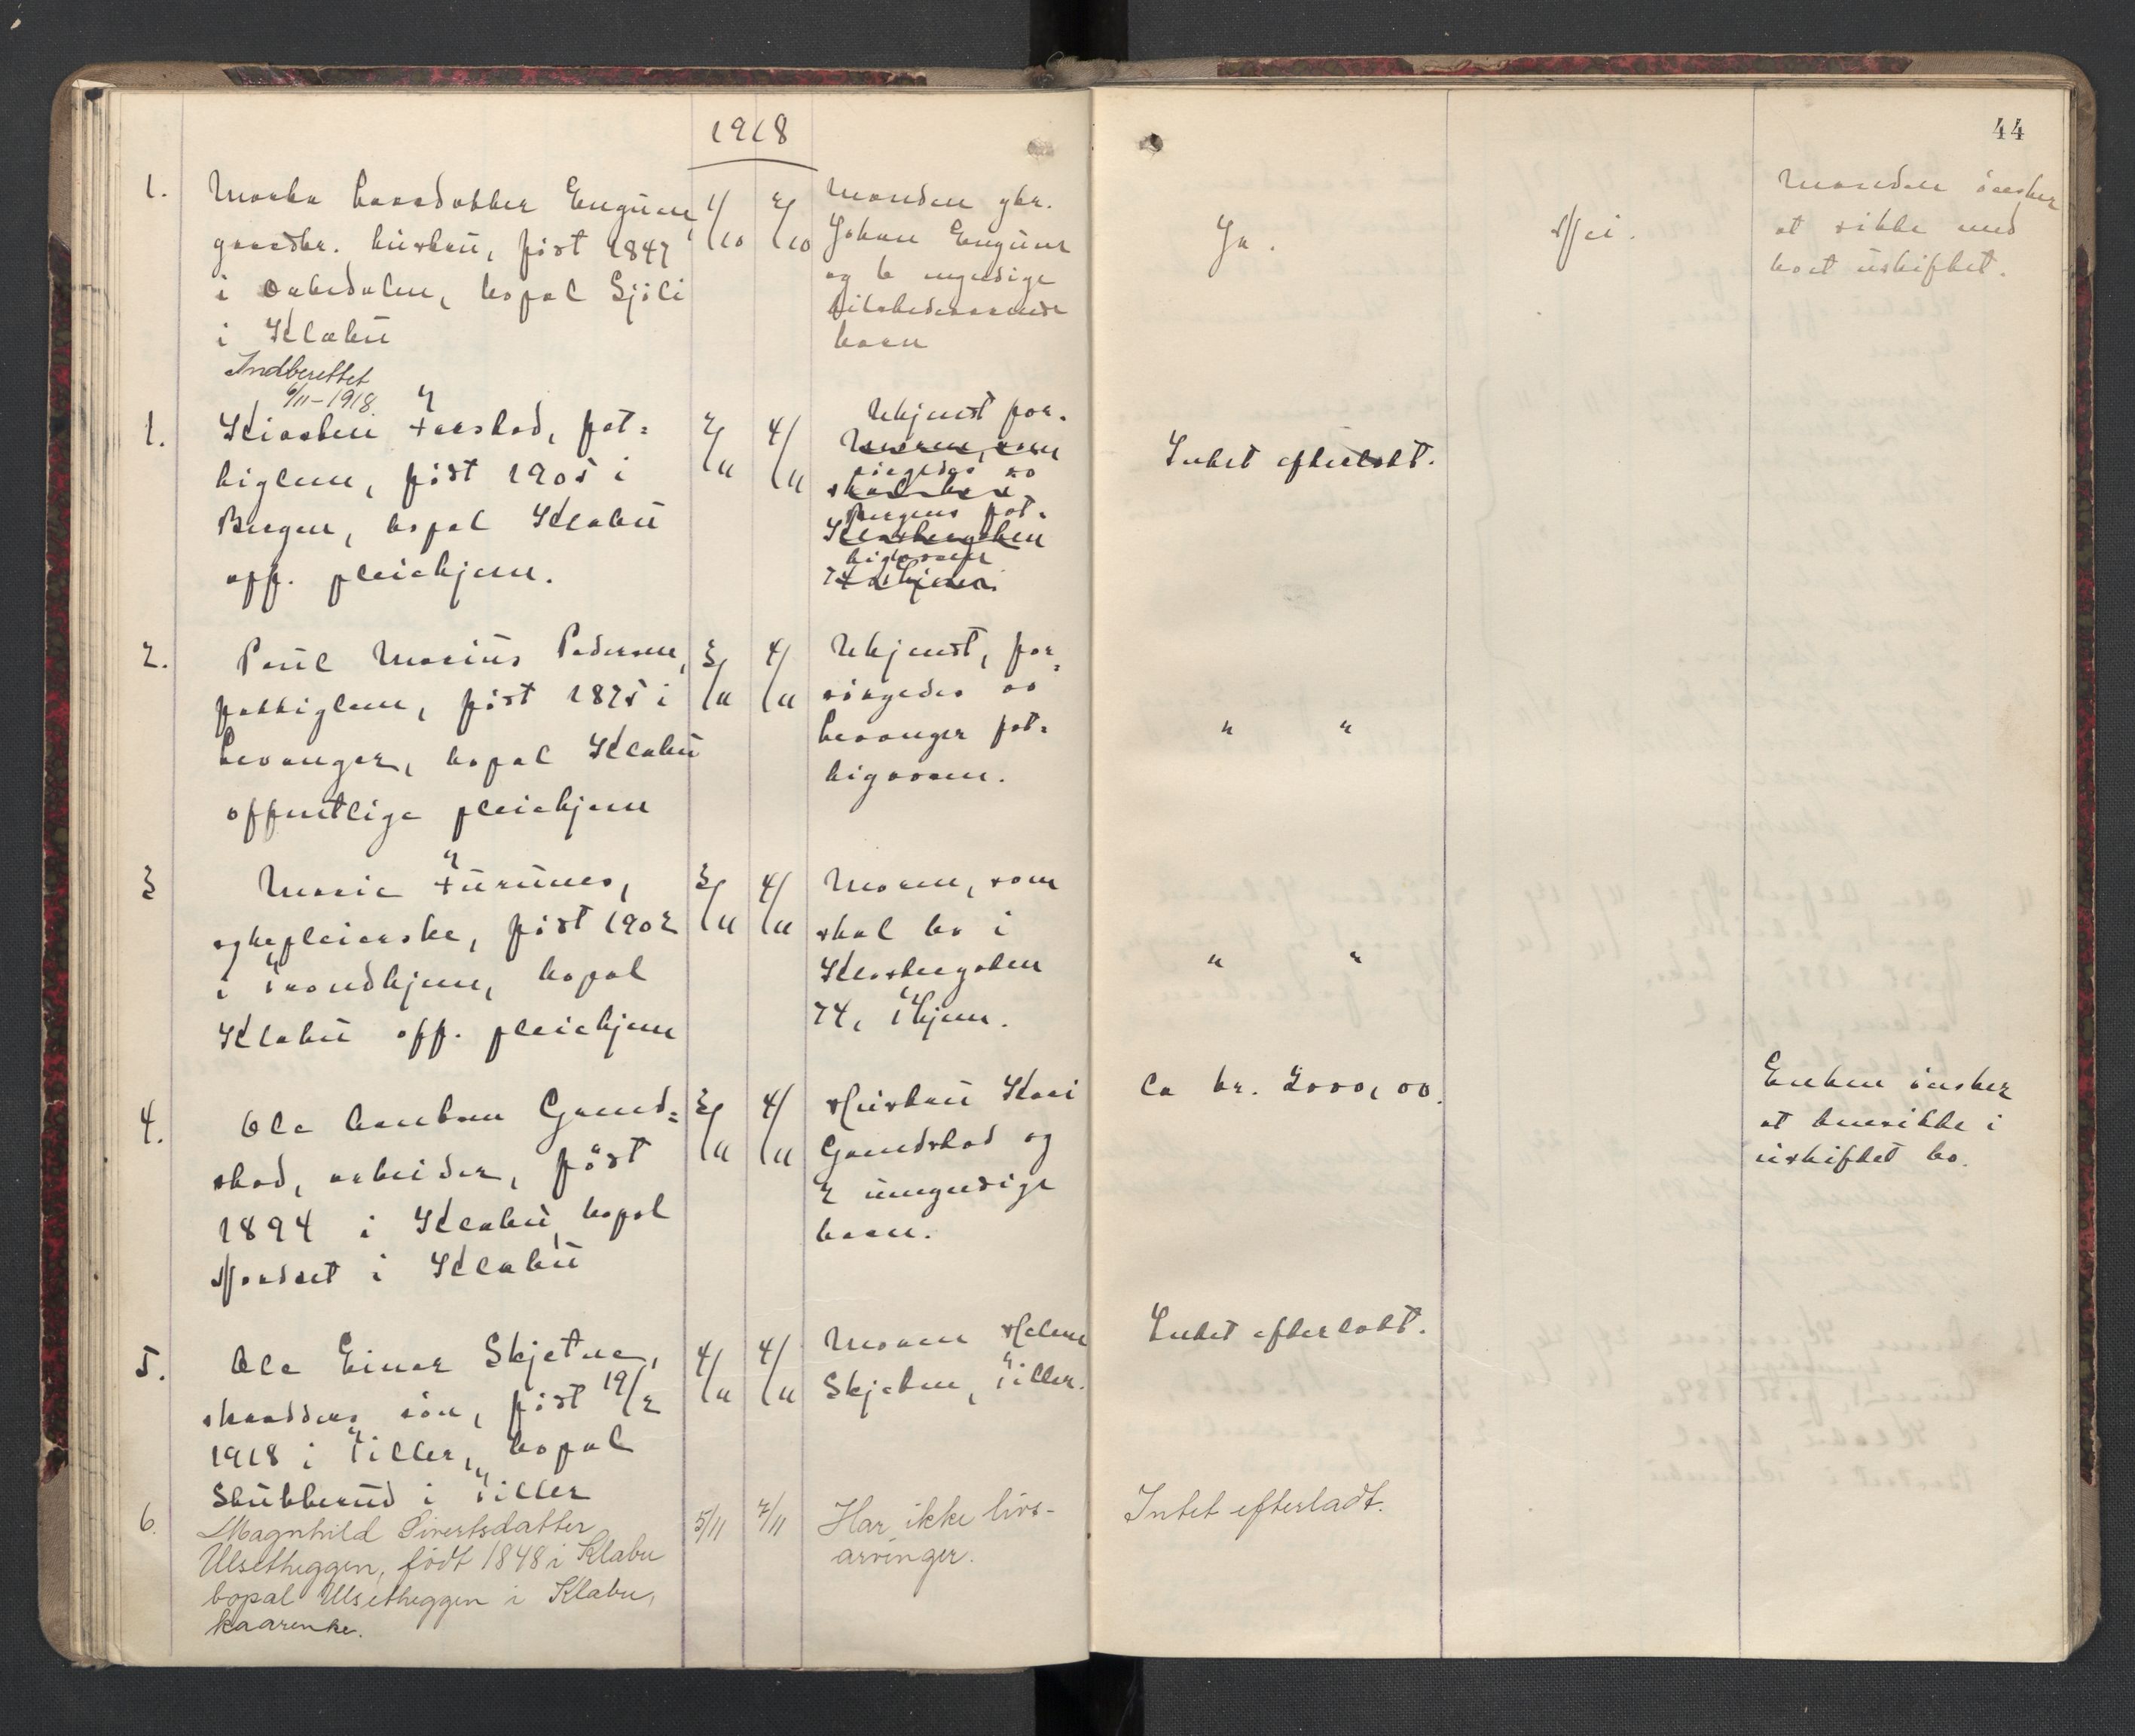 1918
44
1. Marta Larsdatter Engum,
gaardbr. hustru, föst 1847
i Orkedalen, bopal Sjöli
i Klabu
1/10 2/10
Manden gbr.
Johan Engum
og 6 myndige
tilstedeværende
born
Ja.
Nei.
Manden önsker
at sitte med
boet uskiftet.
Indberettet
6/11-1918.
1. Kirsten Farstad, fat-
tiglem, föst 1905 i
Bergen, bopal Klabu
off. pleiehjem.
2/11 4/11
Ukjendt for-
Moren, som
sörgedes av
skal bo i
Bergens fat-
Klostergaten
tigvæsen
74 Thjem.
Intet efterlatt.
2. Paul Marius Pedersen,
fattiglem, föst 1875 i
Levanger, bopal Klabu
offentlige pleiehjem
3/11 4/11
Ukjendt, for-
sörgedes av
Levanger fat-
tigvæsen.
" "
3 Marie Furunes,
sykepleierske, föst 1902
i Trondhjem, bopal
Klabu off. pleiehjem
3/11 4/11
Moren, som
skal bo i
Klostergaten
74, Thjem.
" "
4. Ole Arntsen Gamd-
stad, arbeider, föst
1894 i Klabu bopal
Nordset i Klabu
3/11 4/11
Hustru Kari
Gamdstad og
2 umyndige
barn.
Ca kr. 2000,00.
Enken önsker
at hensitte i
uskiftet bo.
5. Ole Einar Skjetne,
skredders sön, föst 19/2
1918 i Tiller, bopal
Stubberud i Tiller
4/11 4/11
Moren Helene
Skjetne, Tiller.
Intet efterlatt.
6. Magnhild Sivertsdatter
Ulsetheggen, födt 1848 i Klabu
bopal Ulsetheggen i Klabu,
kaarenke.
5/11 7/11
Har ikke livs-
arvinger.
Intet efterladt.